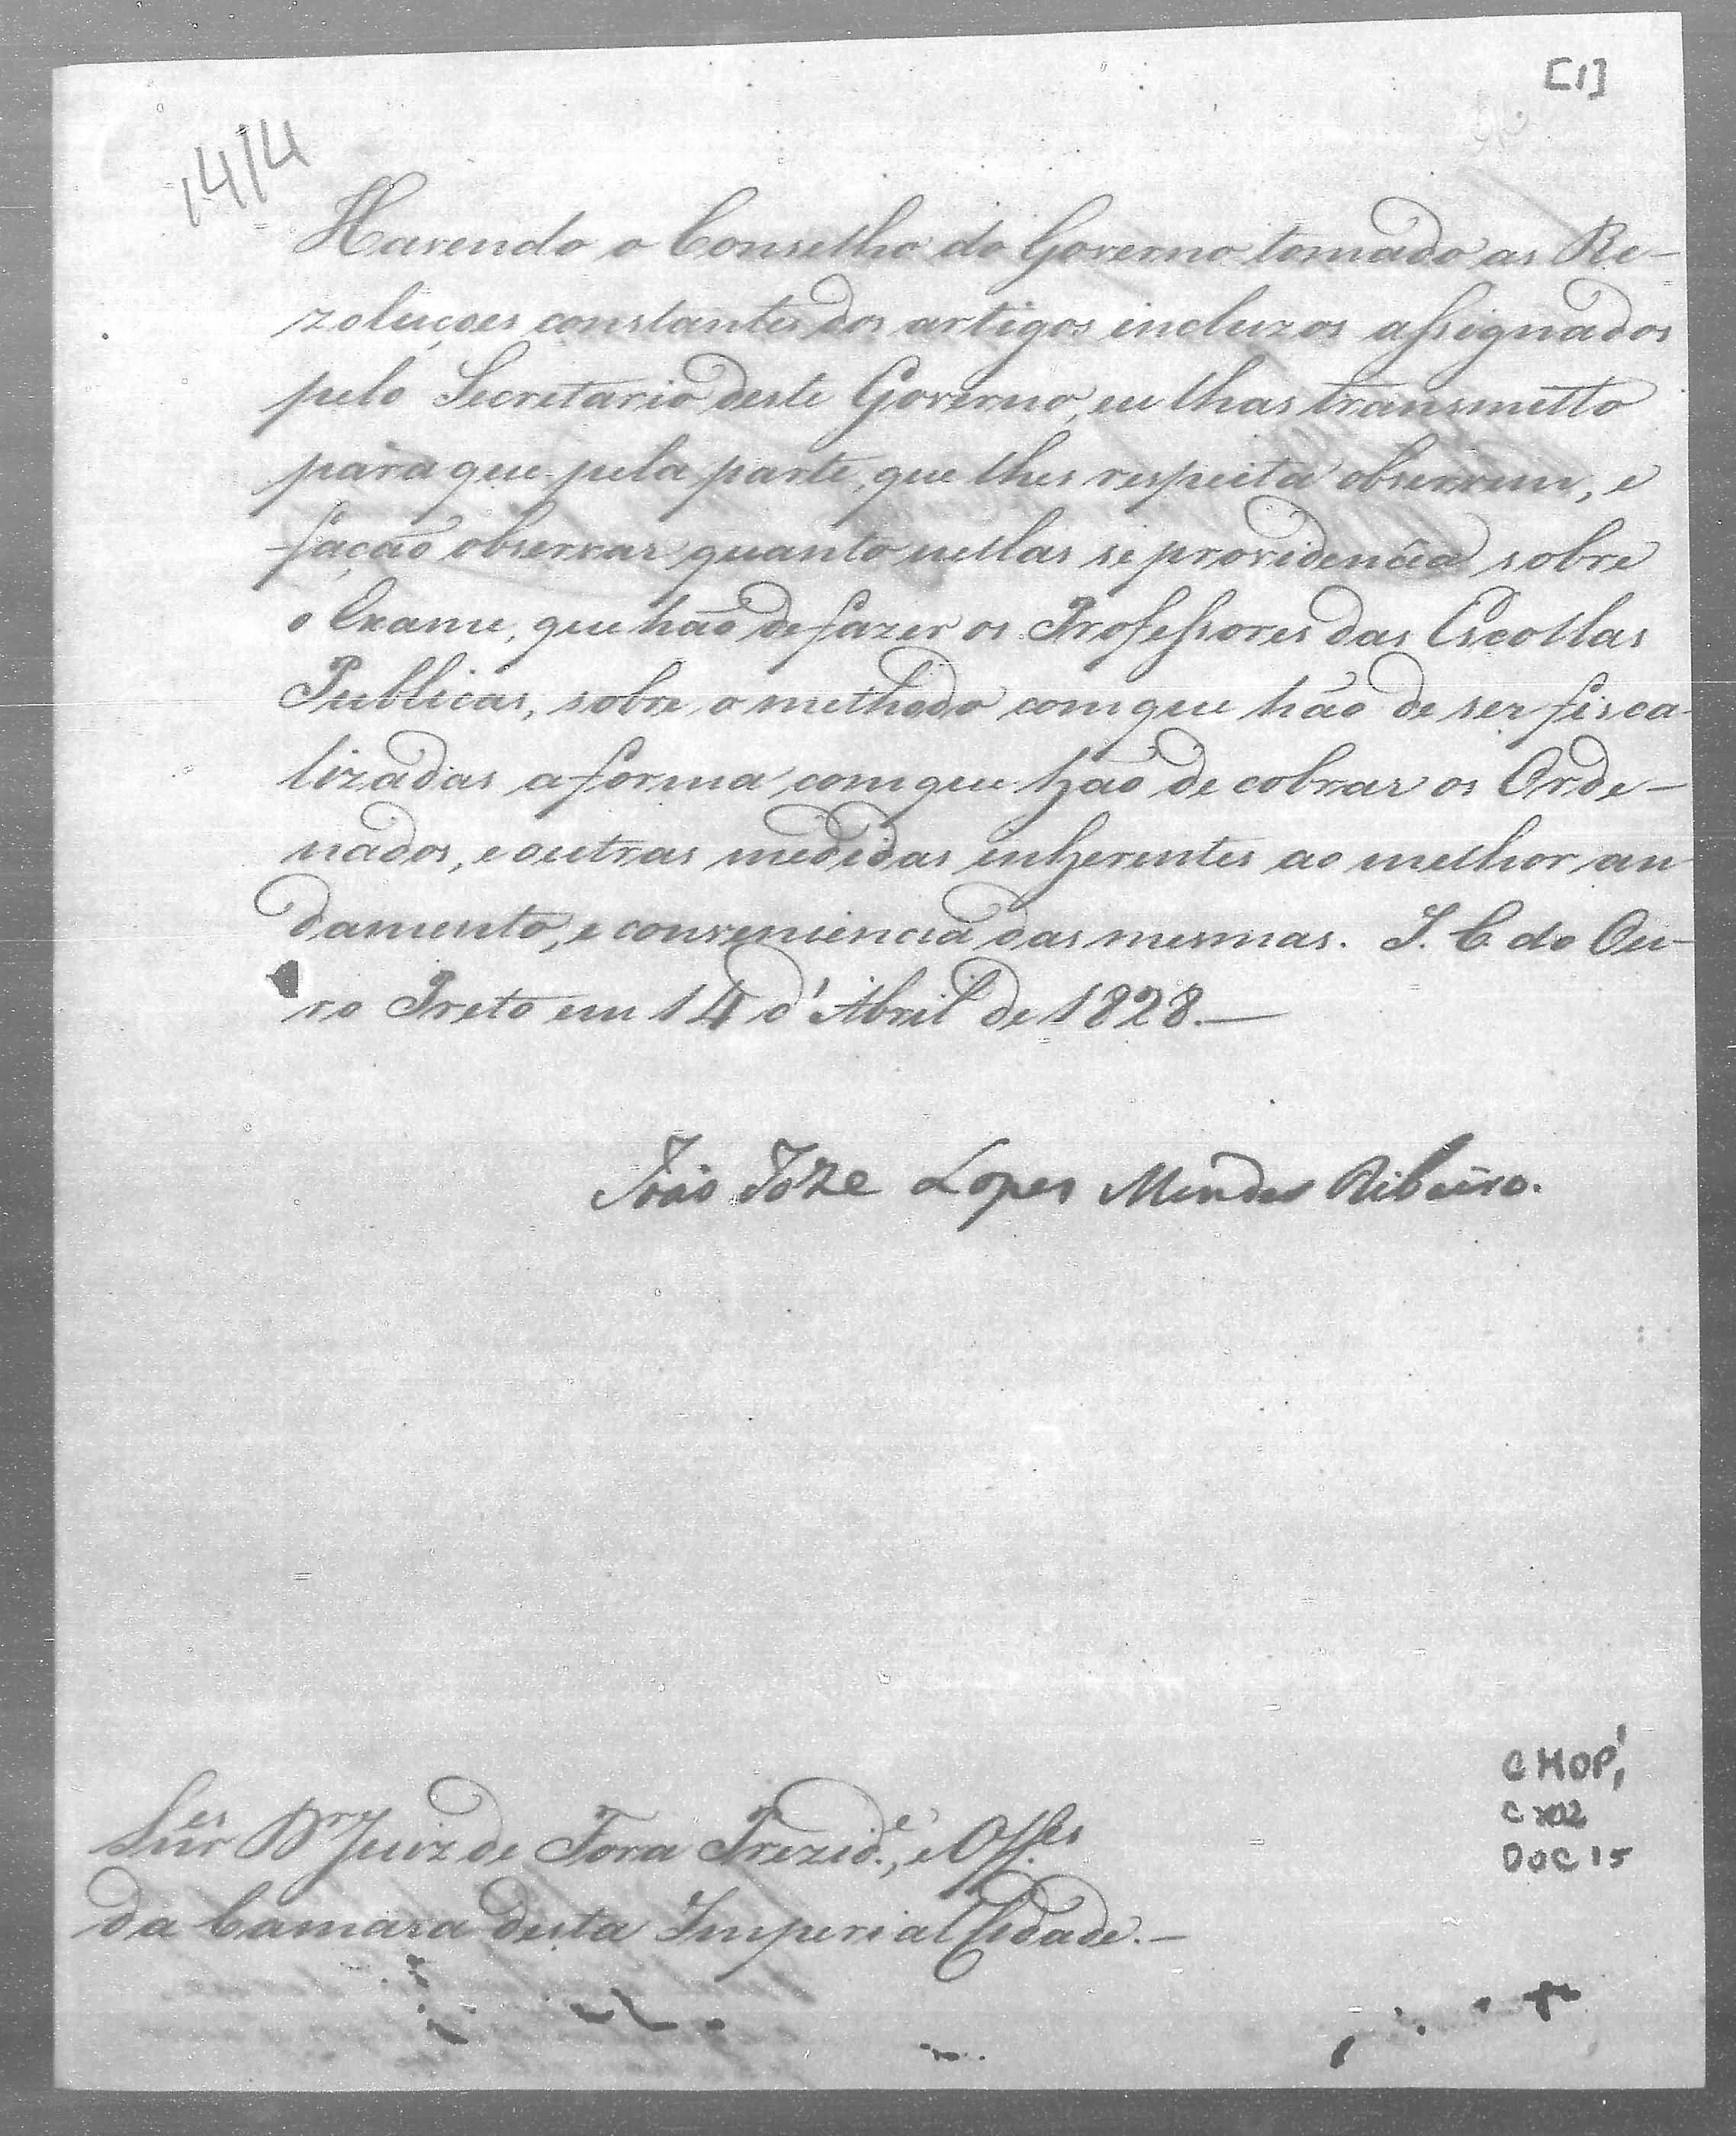 [1]
1414
Havendo o Conselho do Governo tomado as Re-
zoluçoes constantes dos artigos incluzos assignados
pelo Secretario deste Governo, eu lhas transmitto
para que pela parte, que lhes respeita observem, e
fação observar quanto nellas se providencîa sobre
o Exame, que hão de fazer os Professores das Escollas
Publicas, sobre o methodo com que hão de ser fisca-
lizadas a forma com que hão de cobrar os Orde-
nados, e outras medidas inherentes ao melhor an
damento, e conveniencia das mesmas. I. C. do Ou-
ro Preto em 14 d'Abril de 1828.—
João Joze Lopes Mendes Ribeiro.
CMOP,
DOC 15
Snr.es Dr Juiz de Fora Prezid.e, e Off.es
da Camara desta Imperial Cidade.—